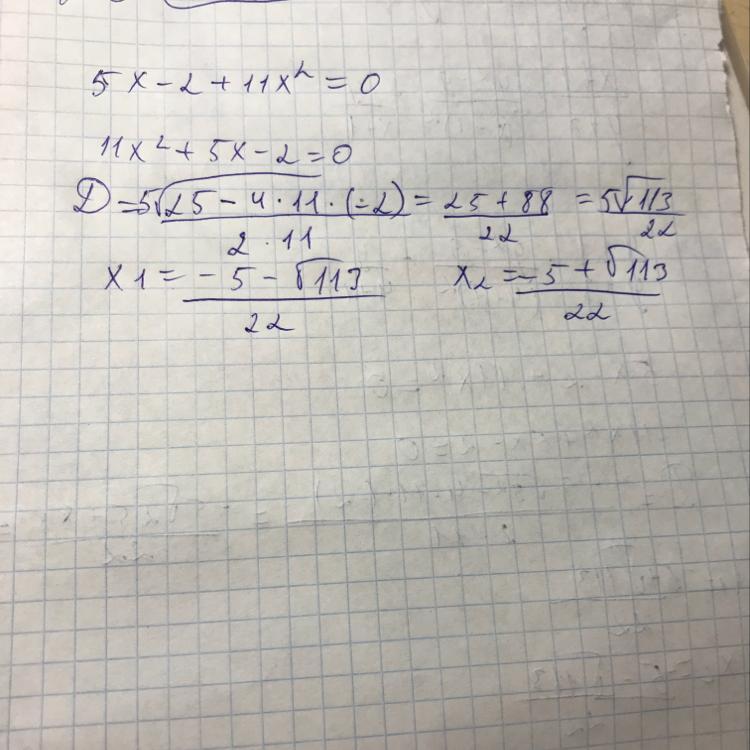 5x-2+11x²=0
11x²+5x-2=0
D=5√25-4·11·(-2)/2·11=25+88/22=5√113/22
x1=-5-√113/22 x₂=-5+√113/22